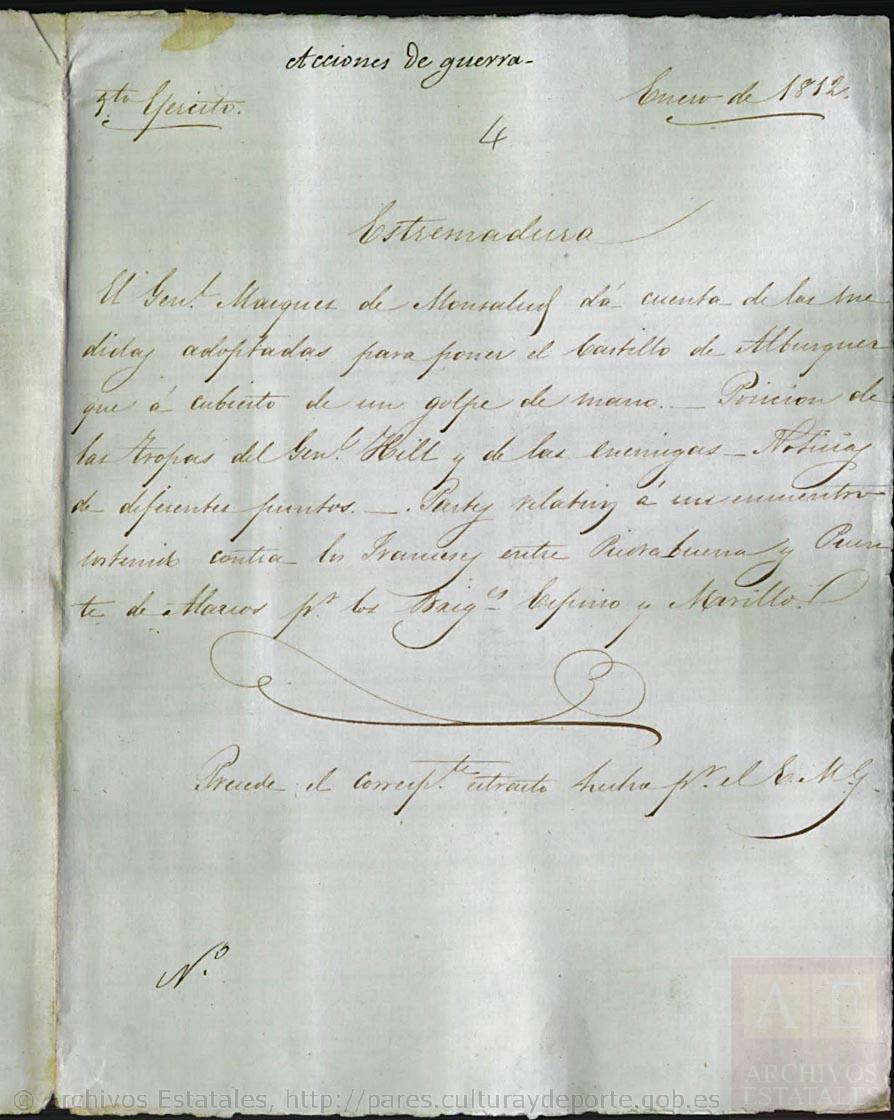 Acciones de guerra.
5.to Ejercito.
Enero de 1812.
4
Estremadura
El Gen.l Marques de Monsalud dá cuenta de las me
didas adoptadas para poner el Castillo de Alburquer
que á cubierto de un golpe de mano. _ Posicion de
las tropas del Gen.l Hill y de las enemigas _ Noticias
de diferentes puntos. _ . Partes relativos á un encuentro
sostenido contra los Franceses entre Piedrabuena y Puen
te de Alarcos p.r los Brig.es Espino y Morillo.
Precede el corresp.te estracto hecho p.r el E. M. G.
N.o
AE
ARCHIVOS
ESTATALES
© Archivos Estatales, http://pares.culturaydeporte.gob.es